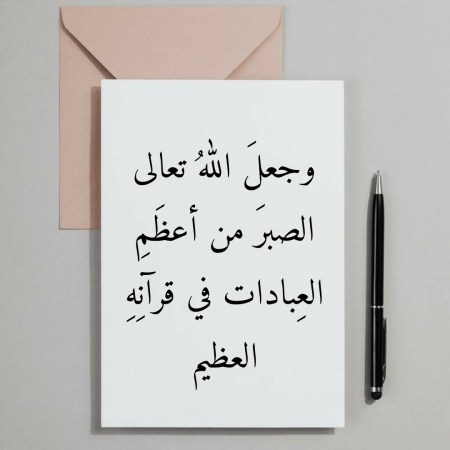 وجعلَ اللهُ تعالى
الصبرَ من أعظَمِ
العِبادات في قرآنِهِ
العظيم